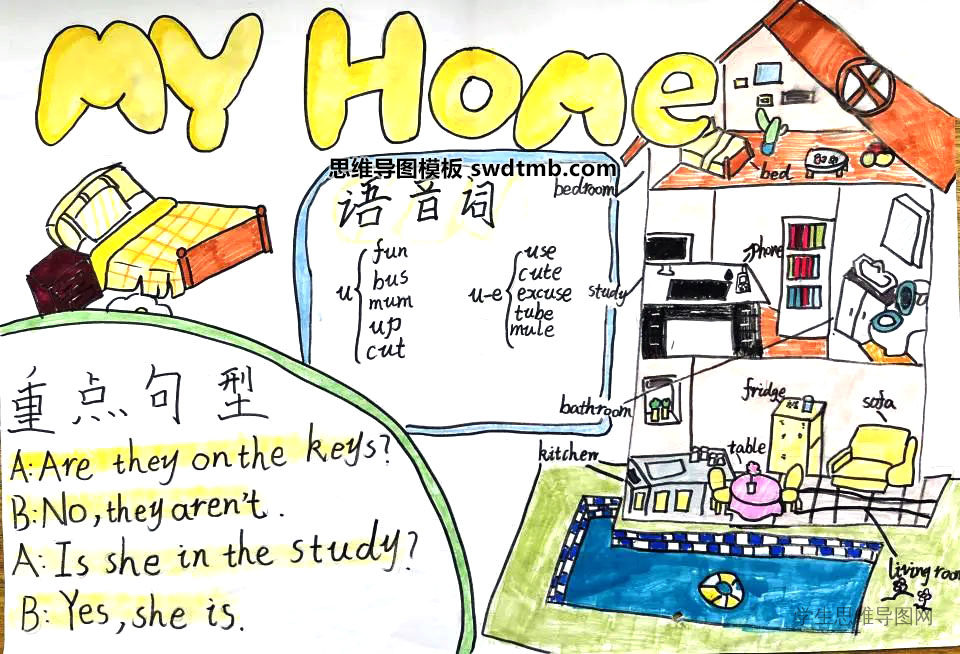 My Home
思维导图模板 swdtmb.com
语音词
u
fun
bus
mum
up
cut
u-e
use
cute
excuse
tube
mule
重点句型
A: Are they on the keys?
B: No, they aren't.
A: Is she in the study?
B: Yes, she is.
bedroom
bed
study
phone
bathroom
fridge
sofa
kitchen
table
living room
学生思维导图网